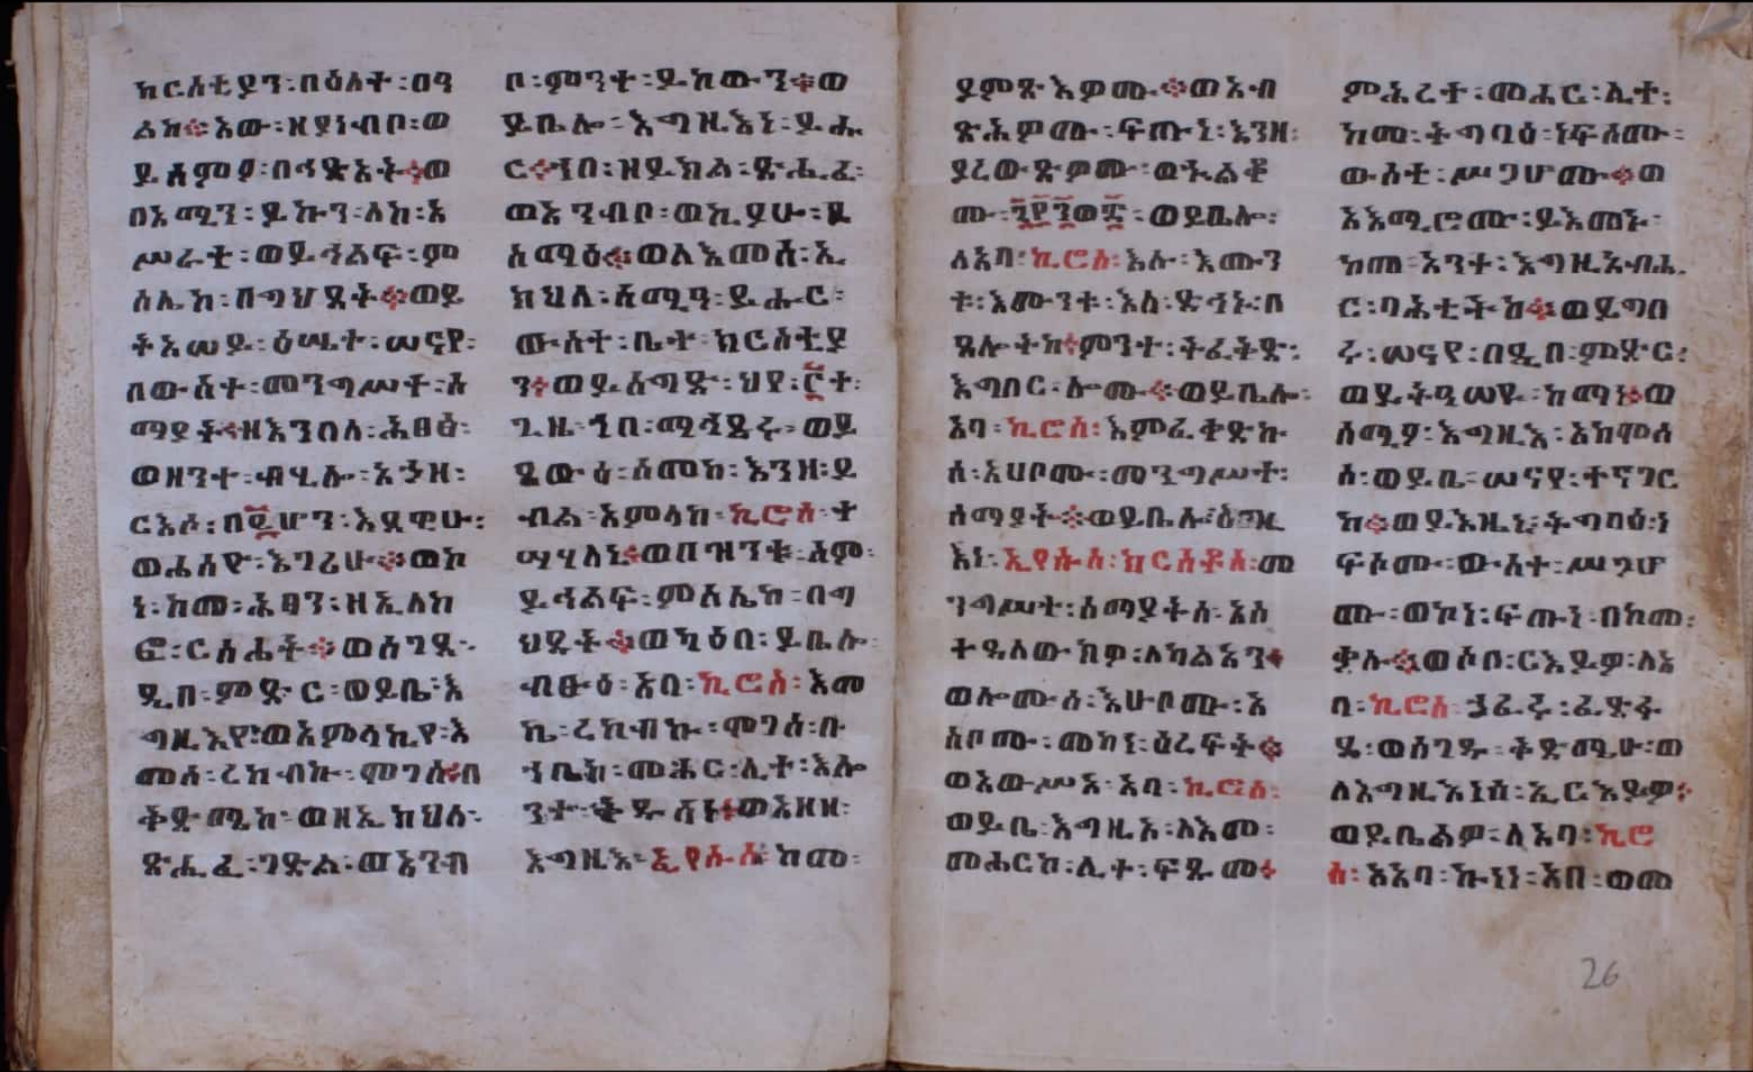 ክርስቲያን፡በዕለተ፡በዓ
ልከ፡አው፡ዘያነብቦ፡ወ
ይሰምዖ፡በጽድቅ፡ወ
በአሚን፡ይኩን፡ለከ፡አ
ሥራተ፡ወይኀልፍ፡ም
ስሌከ፡በግህደት፡ወይ
ትአሠይ፡ዕሤተ፡ሠናየ፡
በውስተ፡መንግሥተ፡ሰ
ማያት፡ዘእንበለ፡ሕፀፅ፡
ወዘንተ፡ብሂሎ፡አኃዘ፡
ርእሶ፡በ፪ሆን፡እደዊሁ፡
ወሐሰዮ፡እገሪሁ፡ወኮ
ነ፡ከመ፡ሕፃን፡ዘኢለከ
ፎ፡ርስሐት፡ወሰገደ፡
ዲበ፡ምድር፡ወይቤ፡እ
ግዚእየ፡ወአምላኪየ፡እ
መሰ፡ረከብኩ፡ሞገሰ፡በ
ቅድሜከ፡ወዘኢክህለ፡
ጽሒፈ፡ገድል፡ወአንብ
ቦ፡ምንተ፡ይከውን፡ወ
ይቤሎ፡እግዚእነ፡ይሑ
ር፡ኀበ፡ዘይክል፡ጽሒፈ፡
ወአንብቦ፡ወኪያሁ፡ይ
ስማዕ፡ወለእመሰ፡ኢ
ክህለ፡ሰሚዓ፡ይሑር፡
ውስተ፡ቤተ፡ክርስቲያ
ን፡ወይስግድ፡ህየ፡፫ተ፡
ጊዜ፡ኀበ፡ማኅደሩ፡ወያ
ዔውዕ፡ስመከ፡እንዘ፡ይ
ብል፡አምላከ፡ኪሮስ፡ተ
ሣሃለኒ፡ወበዝንቱ፡ስም፡
ይኀልፍ፡ምስሌከ፡በግ
ህደት፡ወካዕበ፡ይቤሎ፡
ብፁዕ፡አባ፡ኪሮስ፡እመ
ኬ፡ረከብኩ፡ሞገሰ፡በ
ኀቤከ፡መሐር፡ሊተ፡እሎ
ንተ፡ቅዱሳነ፡ወአዘዘ፡
እግዚእ፡ኢየሱስ፡ከመ፡
ያምጽእዎሙ፡ወአብ
ጽሕዎሙ፡ፍጡነ፡እንዘ፡
ያረውጽዎሙ፡ወኍልቆ
ሙ፡፻፼፻ወ፷፡ወይቤሎ፡
ለአባ፡ኪሮስ፡እሉ፡እሙን
ቱ፡እሙንቱ፡እለ፡ድኅኑ፡በ
ጸሎትከ፡ምንተ፡ትፈትድ፡
እግበር፡ሎሙ፡ወይቤሎ፡
አባ፡ኪሮስ፡እምፈቀድኩ
ሰ፡አሀቦሙ፡መንግሥተ፡
ሰማያት፡ወይቤሎ፡እግዚ
እነ፡ኢየሱስ፡ክርስቶስ፡መ
ንግሥተ፡ሰማያትሰ፡እለ
ተዳለውክዎ፡ለካልአን፡
ወሎሙሰ፡አሁቦሙ፡እ
ሰቦሙ፡መካነ፡ዕረፍት፡
ወአውሥአ፡አባ፡ኪሮስ፡
ወይቤ፡እግዚእ፡ለእመ፡
መሐርከ፡ሊተ፡ፍጹመ፡
ምሕረተ፡መሐር፡ሊተ፡
ከመ፡ትግባዕ፡ነፍሶሙ፡
ውስተ፡ሥጋሆሙ፡ወ
አእሚሮሙ፡ይእመኑ፡
ከመ፡አንተ፡እግዚአብሔ
ር፡ባሕቲትከ፡ወይግበ
ሩ፡ሠናየ፡በዲበ፡ምድር፡
ወይትዔሠዩ፡ከማነ፡ወ
ሰሚዖ፡እግዚእ፡አክሞሰ
ሰ፡ወይቤ፡ሠናየ፡ተናገር
ከ፡ወይእዜኒ፡ትግባዕ፡ነ
ፍሶሙ፡ውስተ፡ሥጋሆ
ሙ፡ወኮነ፡ፍጡነ፡በከመ፡
ቃሉ፡ወሶቦ፡ርእይዎ፡ለአ
ባ፡ኪሮስ፡ኃፈሩ፡ፈድፋ
ዴ፡ወሰገዱ፡ቅድሜሁ፡ወ
ለእግዚእነሰ፡ኢርእይዎ፡
ወይቤልዎ፡ለአባ፡ኪሮ
ስ፡አአባ፡ኩነነ፡አበ፡ወመ
26